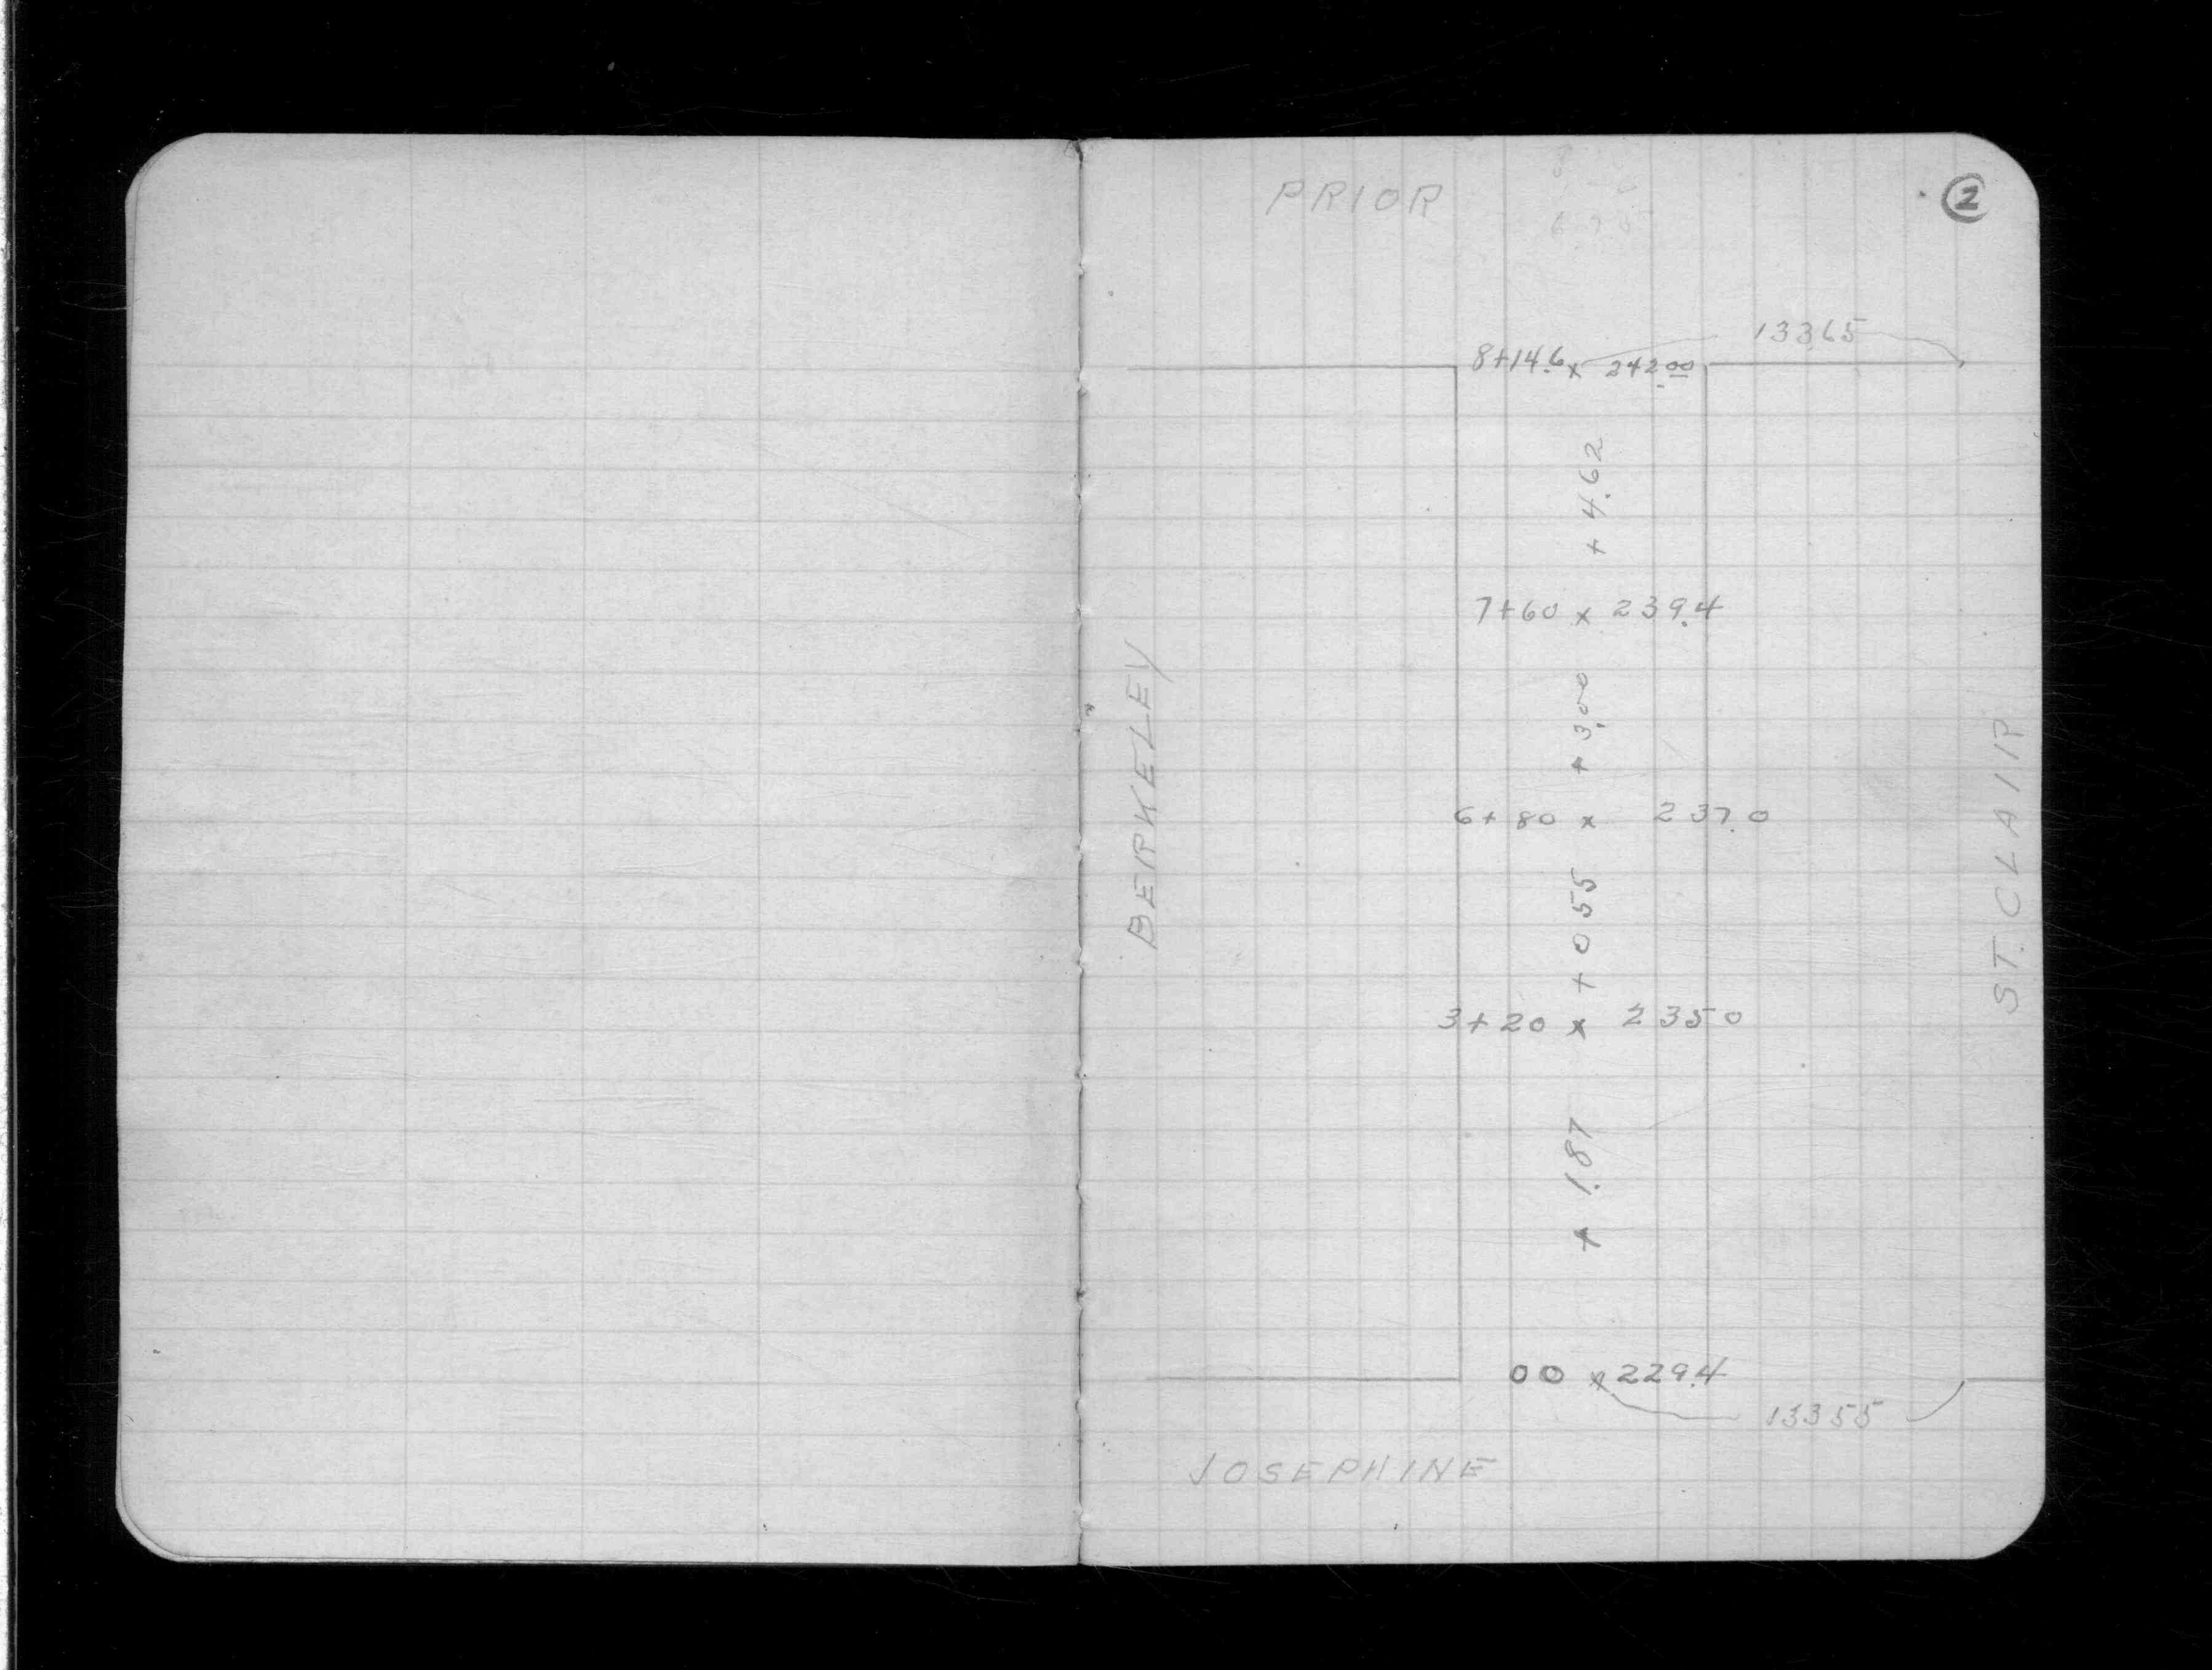 PRIOR
2
13365
8+14.6 x 242.00
+ 4.62
7+60 x 239.4
+ 3.00
BERKELEY
6+80 x 237.0
ST. CLAIR
+ 055
3+20 x 2350
+ 1.87
00 x 229.4
13355
JOSEPHINE